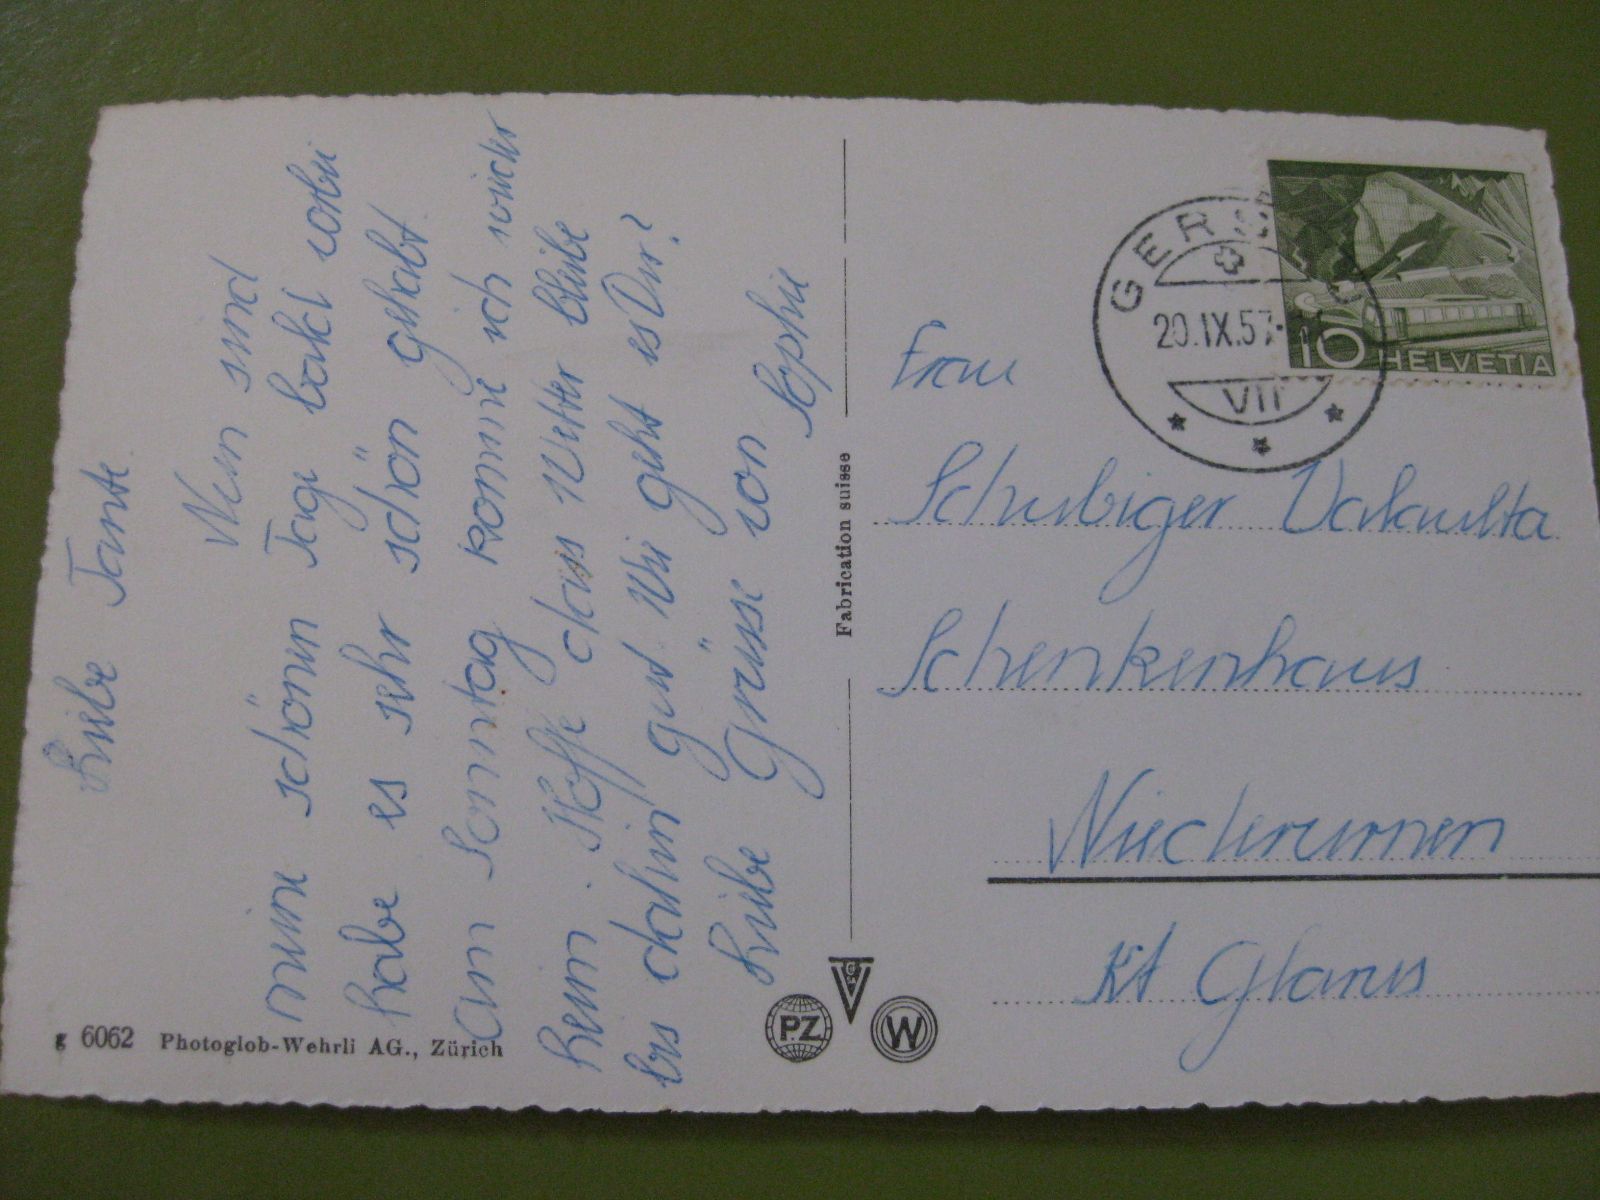 Liebe Tante
Nun sind
meine schönen Tage bald vorbei
habe es sehr schön gehabt
am Sonntag komme ich wieder
heim. Hoffe das Wetter bleibe
bis dahin gut Wie geht es Dir?
Liebe Grüsse von Sophie
Fabrication suisse
g 6062 Photoglob-Wehrli AG., Zürich
PZ
W
20.IX.57
VII
10 HELVETIA
Frau
Schubiger
Schenkenhaus
Niederurnen
Kt Glarus